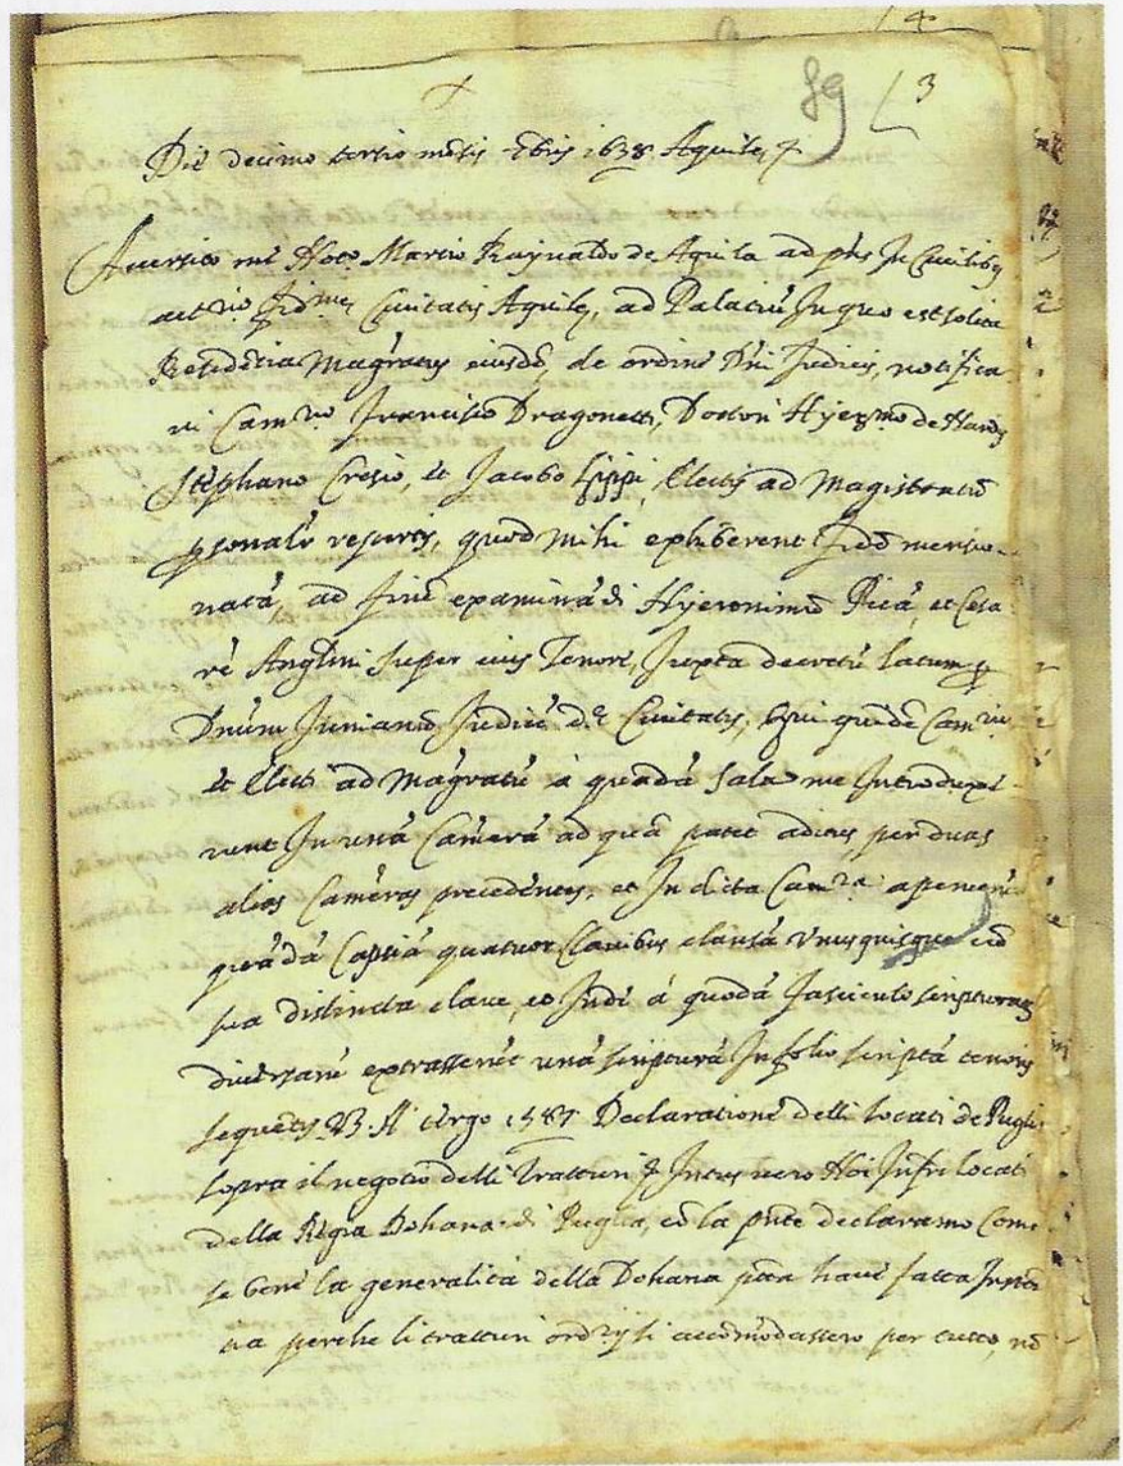 4
89 3
Die decimo tertio mẽsis Xbris 1638 Aquilę
Accersito me Notō Martio Raynaldo de Aquila ad pñs In Ciuilibꝫ
act.rio fid.me Ciuitatis Aquilę, ad Palatiũ In quo est solita
Residẽtia Magr̃atus eiusdẽ, de ordine Dñi Judicis, notifica
ui Cam.rio Francisco Dragonetti, Doctori Hyer.mo de Nardis
Stephano Cresio, et Jacobo Lippi, Electis ad Magistratũ
ꝑsonalr̃ repertis, quod mihi exhiberent fidẽ mentio-
natã, ad finẽ examinãdi Hyeronimũ Picã, et Cesa
rẽ Anglini super eius Tenore, Juxta decretũ latum ꝑ
Dnũm Junianũ Judicẽ d.ę Ciuitatis, Qui quidẽ Cam.rius
et Electi ad Magr̃atũ á quadã sala me Introduxe-
runt In unã Camerã ad quã patet aditus per duas
alias Cameras precedẽntes, et In dicta Cam.ra aperierũt
quãdã Capsiã quatuor Clauibus clausã Vnusquisque cũ
sua distincta claue, et Inde á quodã fasciculo scripturarũ
diuersarũ extrasserũt unã scripturã In folio scriptã tenoris
sequẽtis V3. A tergo 1587 Declaratione delli locati de Puglia
sopra il negotio delli Tratturi Intus uero Noi Infr̃i locati
della Regia Dohana di Puglia, cõ la pñte declaramo Come
se bene la generalità della Dohana p̃ta have fatta Instan
tia perche li tratturi ord.rij si accõmodassero per tutto, nõ